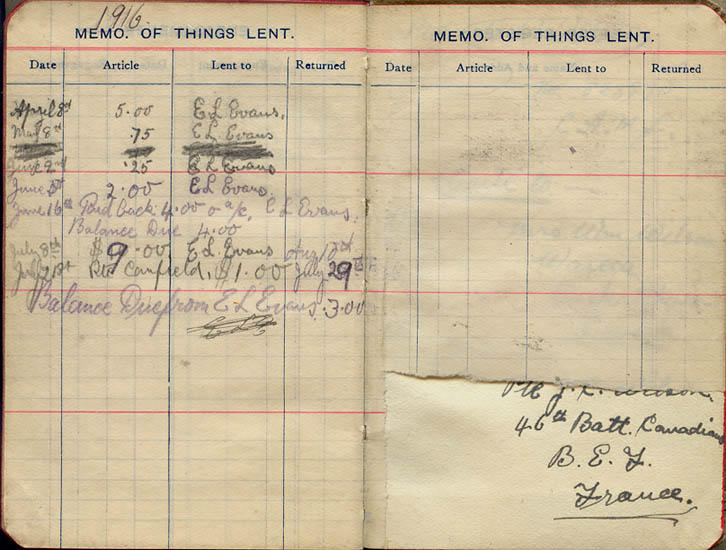 1916.
MEMO. OF THINGS LENT.
Date Article Lent to Returned
April 8th 5.00 E L Evans.
May 8th .75 E L Evans
June 2nd .25 E L Evans
June 2.00 E L Evans.
June 16th Paid back 4.00 o a/c, E L Evans.
Balance Due 4.00
July 8th $9.00 E L Evans
July Canfield, $1.00 July 29th
Balance Due from E L Evans, 3.00
MEMO. OF THINGS LENT.
Date Article Lent to Returned
46th Batt. Canadians
B. E. F.
France.